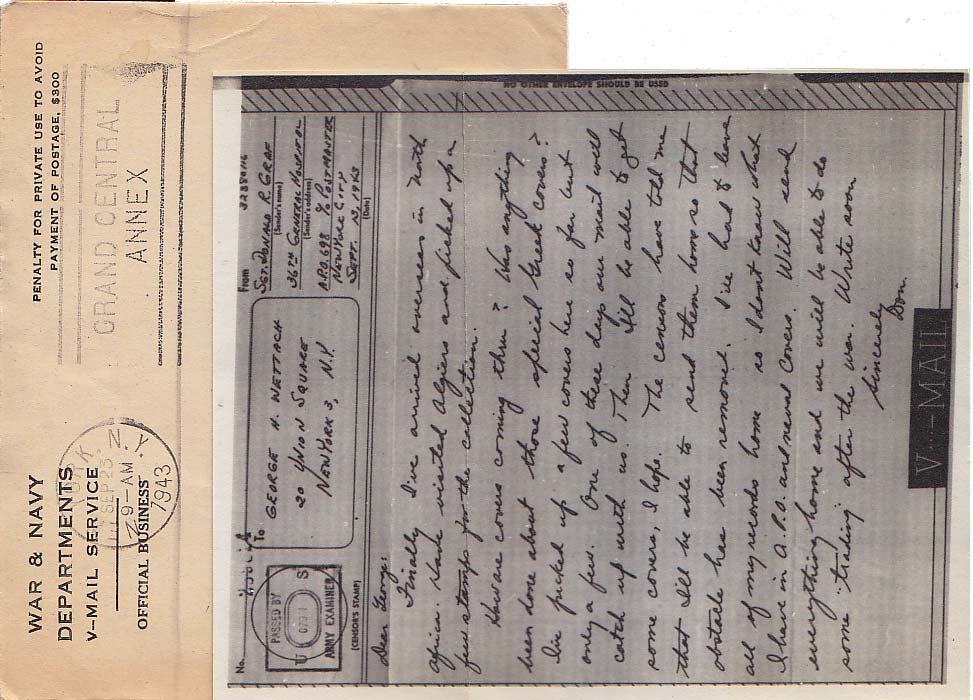 WAR & NAVY
DEPARTMENTS
V-MAIL SERVICE
OFFICIAL BUSINESS
PENALTY FOR PRIVATE USE TO AVOID
PAYMENT OF POSTAGE, $300
GRAND CENTRAL
ANNEX
YORK, N.Y.
SEP 23
9-AM
1943
NO OTHER ENVELOPE SHOULD BE USED
No.
PASSED BY
U S
ARMY EXAMINER
(CENSOR'S STAMP)
To
GEORGE H. WETTACH
20 UNION SQUARE
NEW YORK 3, N.Y.
From
32380116
SGT. DONALD R. GRAF
(Sender's name)
36TH GENERAL HOSPITAL
(Sender's address)
A.P.O. 698 % POSTMASTER
NEW YORK CITY
SEPT. 13, 1943
(Date)
Dear George:
Finally I've arrived overseas in North
Africa. Have visited Algiers and picked up a
few stamps for the collection.
How are covers coming thru? Was anything
been done about those special Greek covers?
I've picked up a few covers here so far but
only a few. One of these days our mail will
catch up with us. Then I'll be able to get
some covers, I hope. The censors have told me
that I'll be able to send them home so that
obstacle has been removed. I've had to leave
all of my records home so I dont know what
I have in A.P.O. and naval covers. Will send
everything home and we will be able to do
some "trading" after the war. Write soon
Sincerely
Don
V···-MAIL